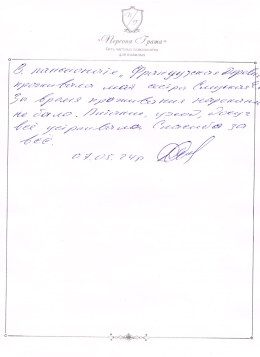 «Персона Грата»
В пансионате „Французская деревня
проживала моя сестра
За время проживания нареканий
не было. Питание, уход, досуг
всё устраивало Спасибо за
всё.
07.05.24г